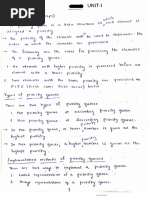 UNIT-1
is a data structure in which element is
assigned a priority.
* The priority of the element will be used to determine the
order in which the elements are processed.
* The following are the rules for processing the elements
of a priority queue.
1. An element with higher priority is processed before an
element with a lower priority.
2. Two elements with the same priority are processed on
FCFS (first come first served) basis.
Types of priority queues
There are two types of priority queues.
1. Ascending order priority queue
2. Descending order priority queue.
In ascending order priority, a lower number is given as the highest
priority.
In descending order priority, a higher number is given as the
highest priority.
Implementation methods of priority queues
There are two ways to implement a priority queue.
1. Linked representation of a priority queue.
2. Array representation of a priority queue.